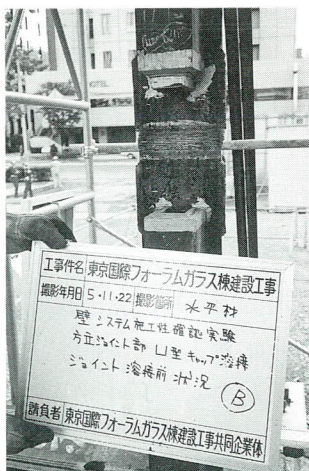 工事件名 東京国際フォーラムガラス棟建設工事
撮影年月日 5・11・22 撮影箇所 水平材
壁システム施工性確認実験
方立ジョイント部 凵型キャップ溶接
ジョイント溶接前状況 Ⓑ
請負者 東京国際フォーラムガラス棟建設工事共同企業体